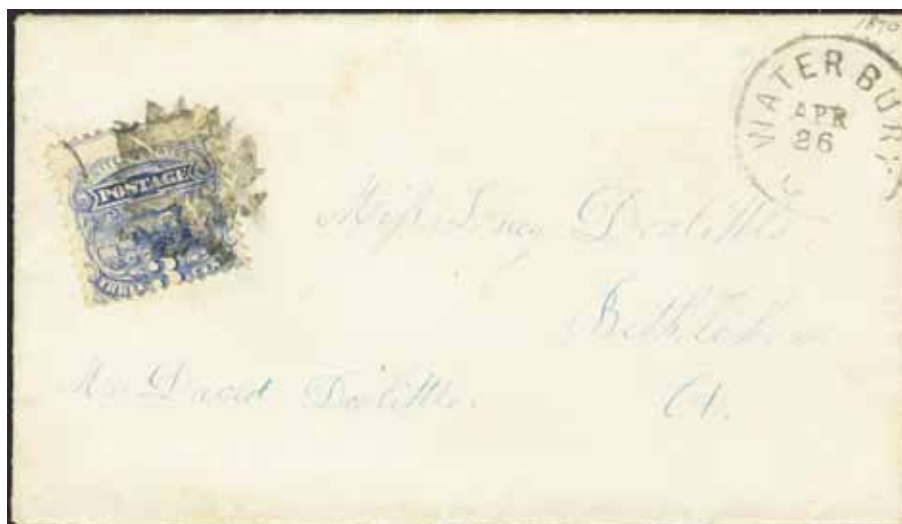 1870
WATERBURY
APR
26
POSTAGE
Miss Lucy Doolittle
Bethlehem
Ct.
David Doolittle.